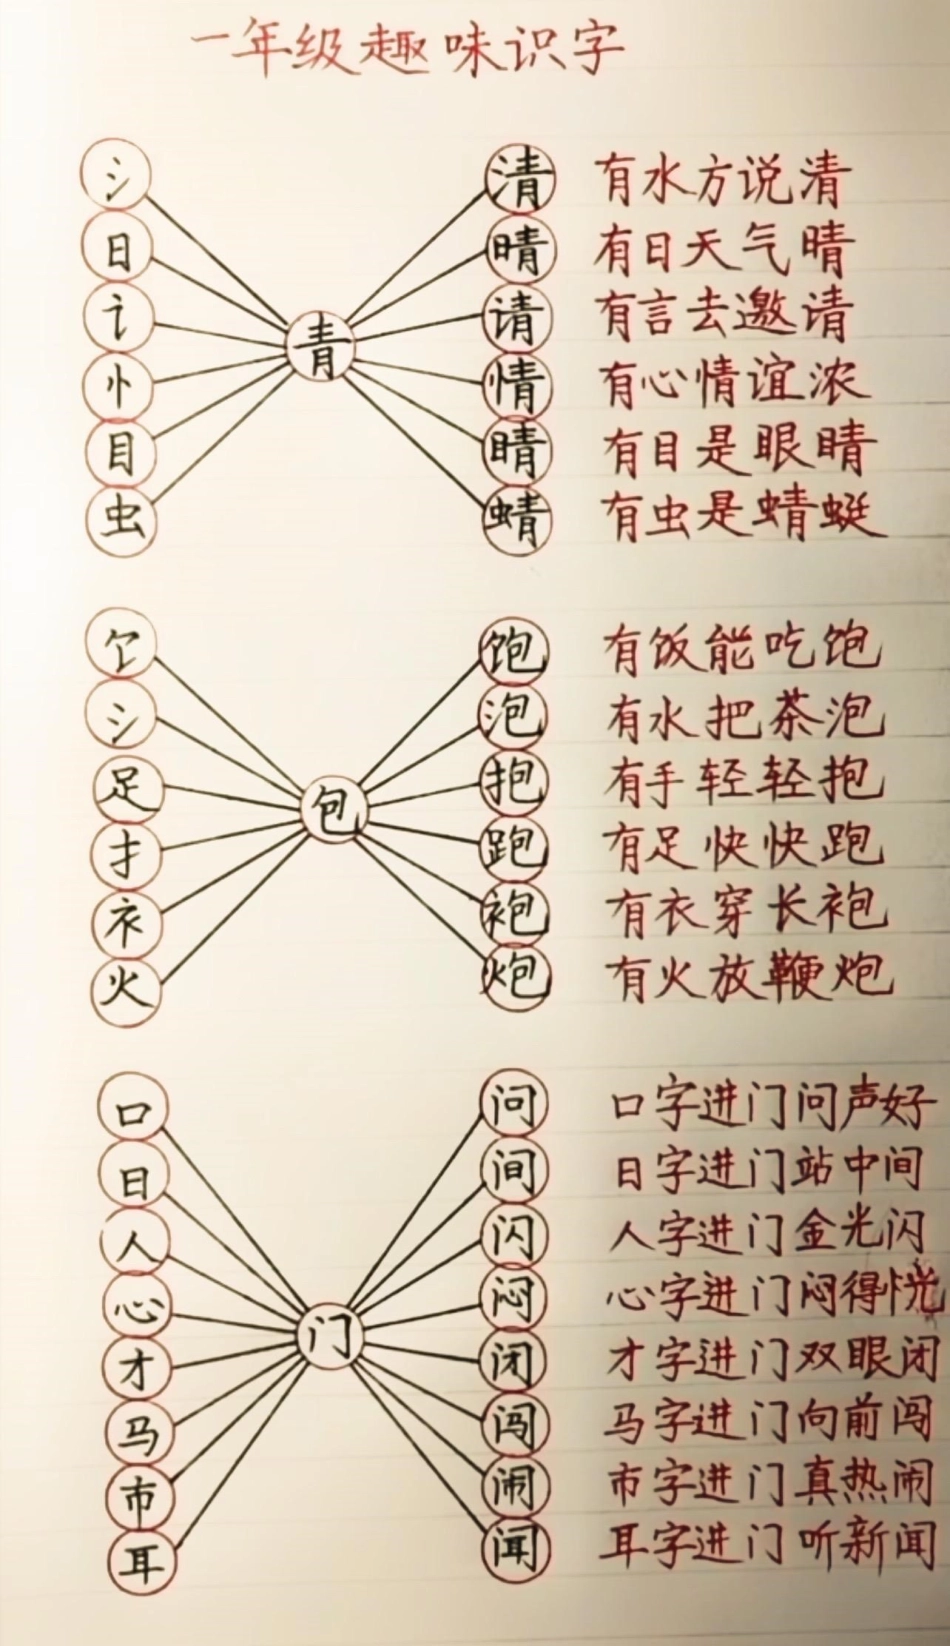 一年级趣味识字
氵 清 有水方说清
日 晴 有日天气晴
讠 请 有言去邀请
青
忄 情 有心情谊浓
目 睛 有目是眼睛
虫 蜻 有虫是蜻蜓
饣 饱 有饭能吃饱
氵 泡 有水把茶泡
足 抱 有手轻轻抱
包
扌 跑 有足快快跑
衤 袍 有衣穿长袍
火 炮 有火放鞭炮
口 问 口字进门问声好
日 间 日字进门站中间
人 闪 人字进门金光闪
心 闷 心字进门闷得慌
门
才 闭 才字进门双眼闭
马 闯 马字进门向前闯
市 闹 市字进门真热闹
耳 闻 耳字进门听新闻